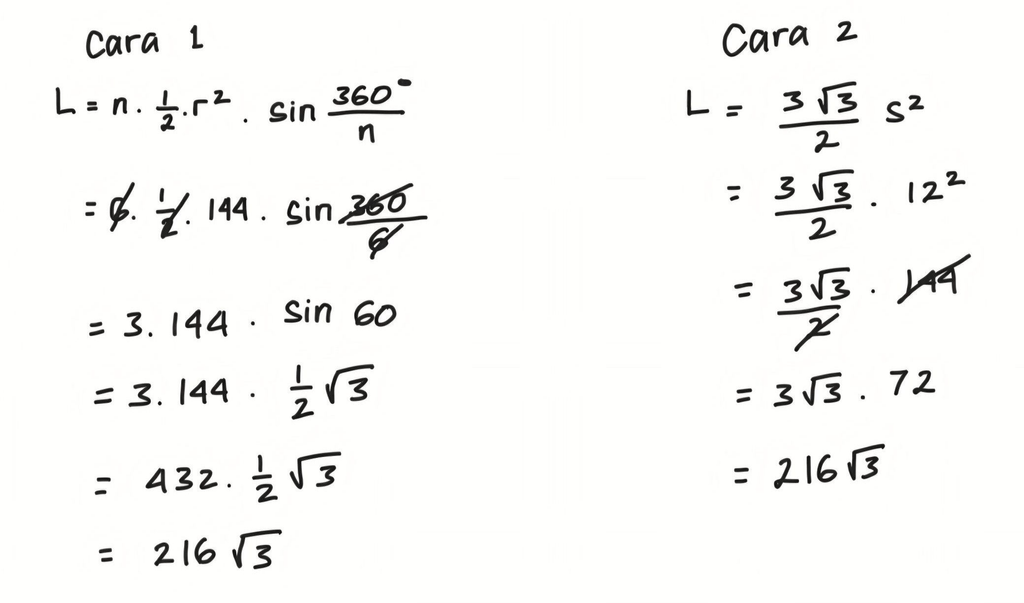 Cara 1
L = n . 1/2 . r² . sin 360°/n
= 6 . 1/2 . 144 . sin 360/6
= 3 . 144 . sin 60
= 3 . 144 . 1/2 √3
= 432 . 1/2 √3
= 216 √3
Cara 2
L = 3√3/2 s²
= 3√3/2 . 12²
= 3√3/2 . 144
= 3√3 . 72
= 216√3